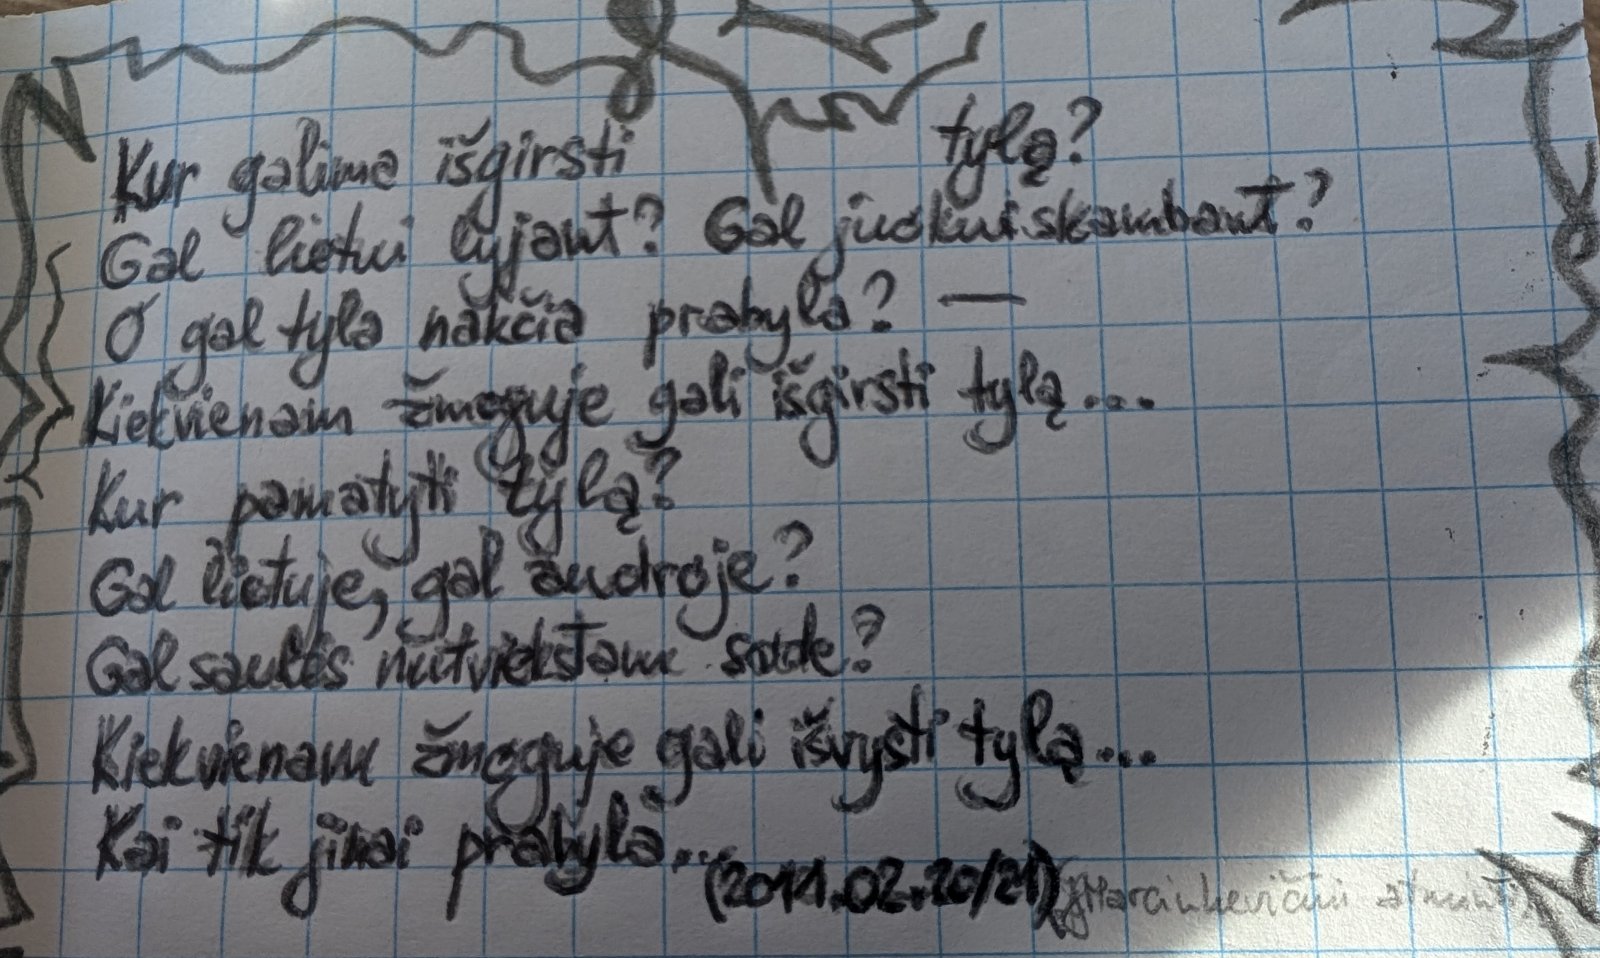 Kur galima išgirsti tylą?
Gal lietui lyjant? Gal juokui skambant?
O gal tyla nakčia prabyla? —
Kiekvienam žmoguje gali išgirsti tylą...
Kur pamatyti tylą?
Gal lietuje, gal audroje?
Gal saulės nutviekstam sode?
Kiekvienam žmoguje gali išvysti tylą...
Kai tik jinai prabyla...
(2011.02.20/21) (J.Marcinkevičiui atminti)